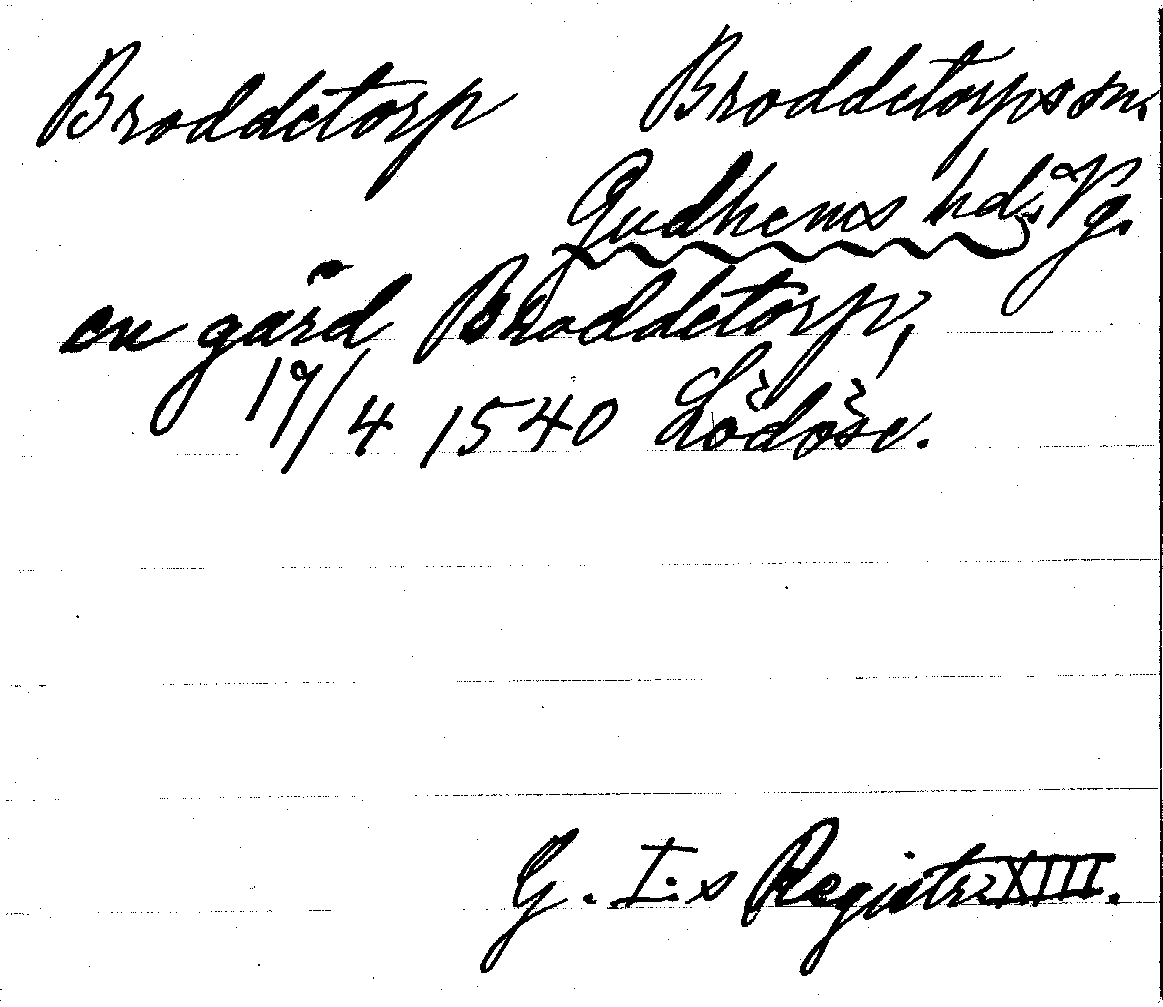 Broddetorp Broddetorps sn.
Gudhems hd. Vg.
en gård Broddetorp,
17/4 1540 Lödöse.
G. I:s Registr. XIII.